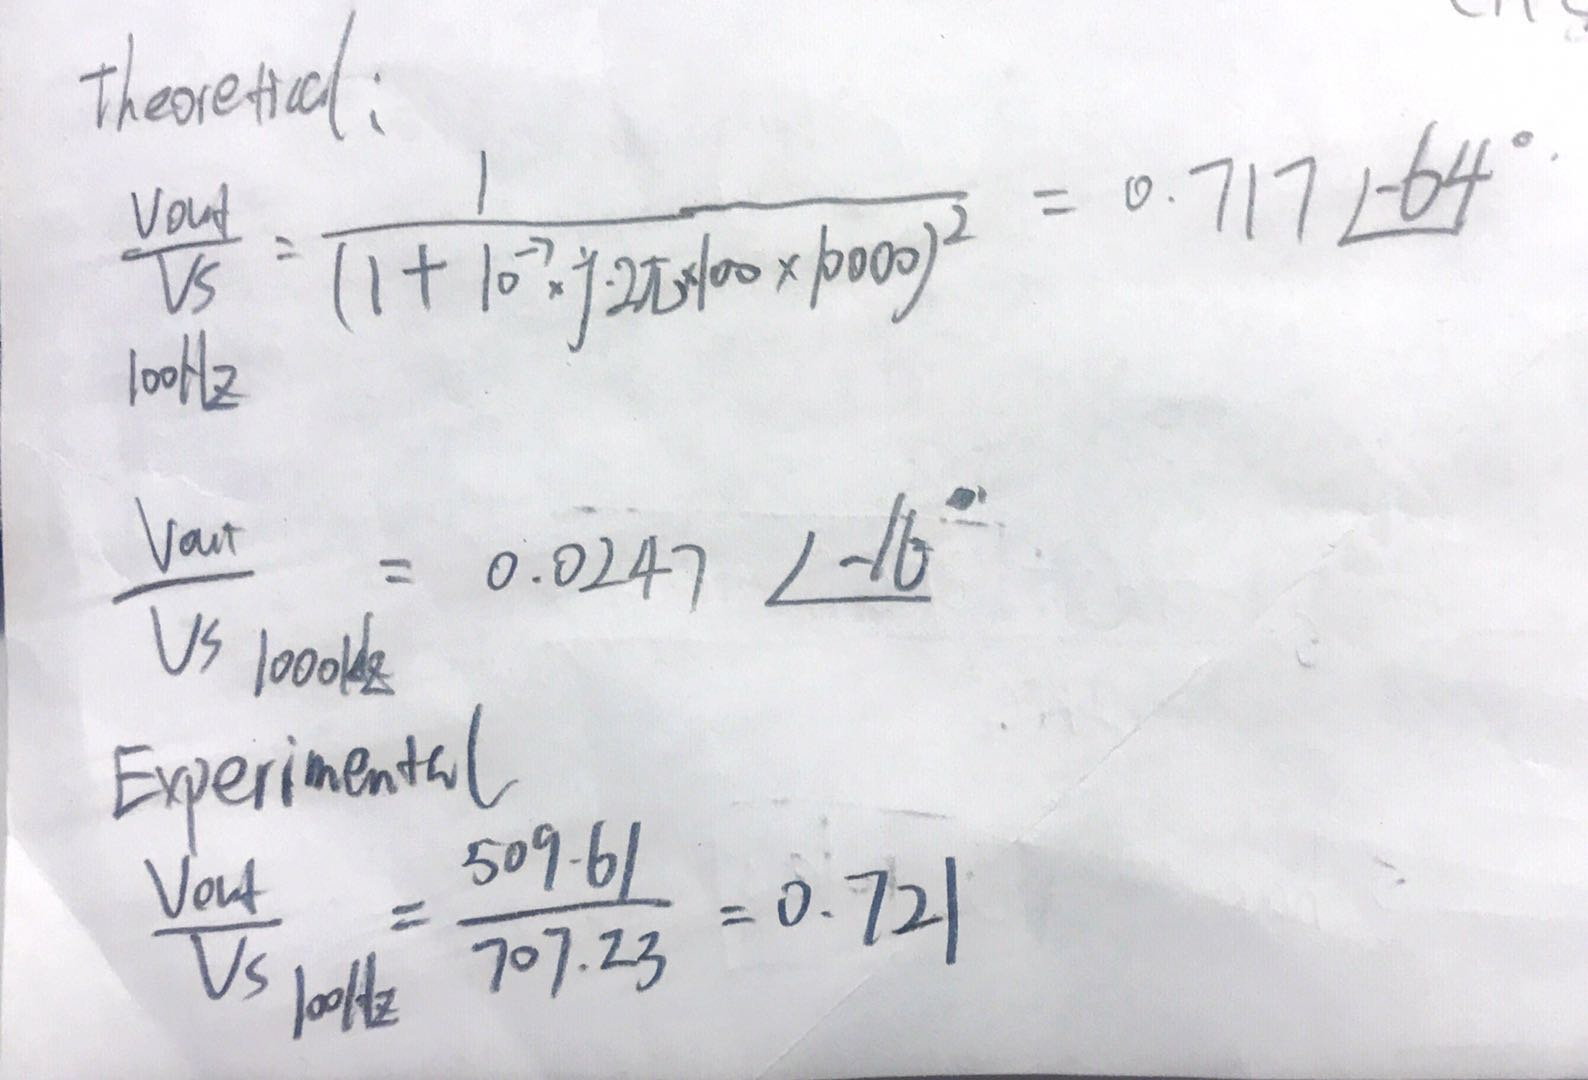 Theoretical:
Vout/Vs 100Hz = 1/(1+10^-7×j·2π×100×10000)^2 = 0.717∠-64°.
Vout/Vs 1000Hz = 0.0247 ∠-16°
Experimental
Vout/Vs 100Hz = 509.61/707.23 = 0.721